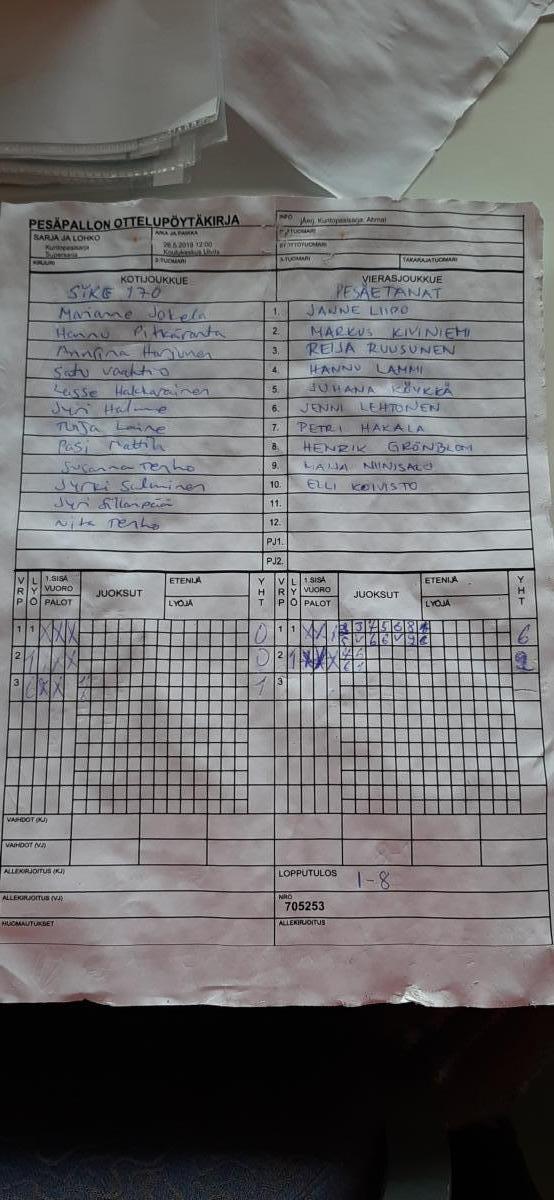 PESÄPALLON OTTELUPÖYTÄKIRJA
SARJA JA LOHKO
Kuntopesissarja
Supersarja
AIKA JA PAIKKA
26.5.2019 12:00
INFO
Kuntopesissarja
PELITUOMARI
SYÖTTÖTUOMARI
KIRJURI
2-TUOMARI
3-TUOMARI
TAKARAJATUOMARI
KOTIJOUKKUE
VIERASJOUKKUE
SIKE 170
PESÄETANAT
Marianne Jokela 1. JANNE LIIPO
Hannu Pitkäranta 2. MARKUS KIVINIEMI
Annina Harjunen 3. REIJA RUUSUNEN
Satu Vaahtio 4. HANNU LAMMI
Lasse Hakkarainen 5. JUHANA KÖYKKÄ
Jyri Halme 6. JENNI LEHTONEN
Tuija Laine 7. PETRI HAKALA
Pasi Mattila 8. HENRIK GRÖNBLOM
Susanna Terho 9. MAIJA NIINISALO
Jyrki Salminen 10. ELLI KOIVISTO
Jyri Sillanpää 11.
Niko Terho 12.
PJ1.
PJ2.
VRP LYÖ 1.SISÄ VUORO PALOT JUOKSUT ETENIJÄ LYÖJÄ YHT VRP LYÖ 1.SISÄ VUORO PALOT JUOKSUT ETENIJÄ LYÖJÄ YHT
1 1 XXX 0 1 1 6
2 0 2
3 1 3 —
VAIHDOT (KJ)
VAIHDOT (VJ)
ALLEKIRJOITUS (KJ)
LOPPUTULOS 1-8
ALLEKIRJOITUS (VJ)
NRO
705253
HUOMAUTUKSET
ALLEKIRJOITUS